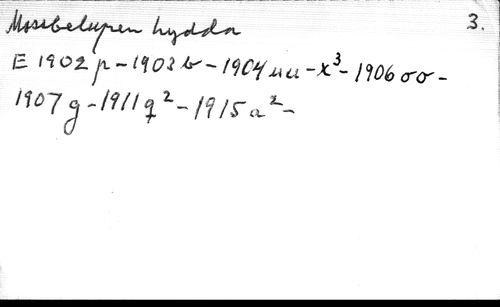 Mossbelupen hydda 3.
E 1902 p - 1903 b - 1904 uu - x³ - 1906 oo -
1907 g - 1911 q² - 1915 a² -